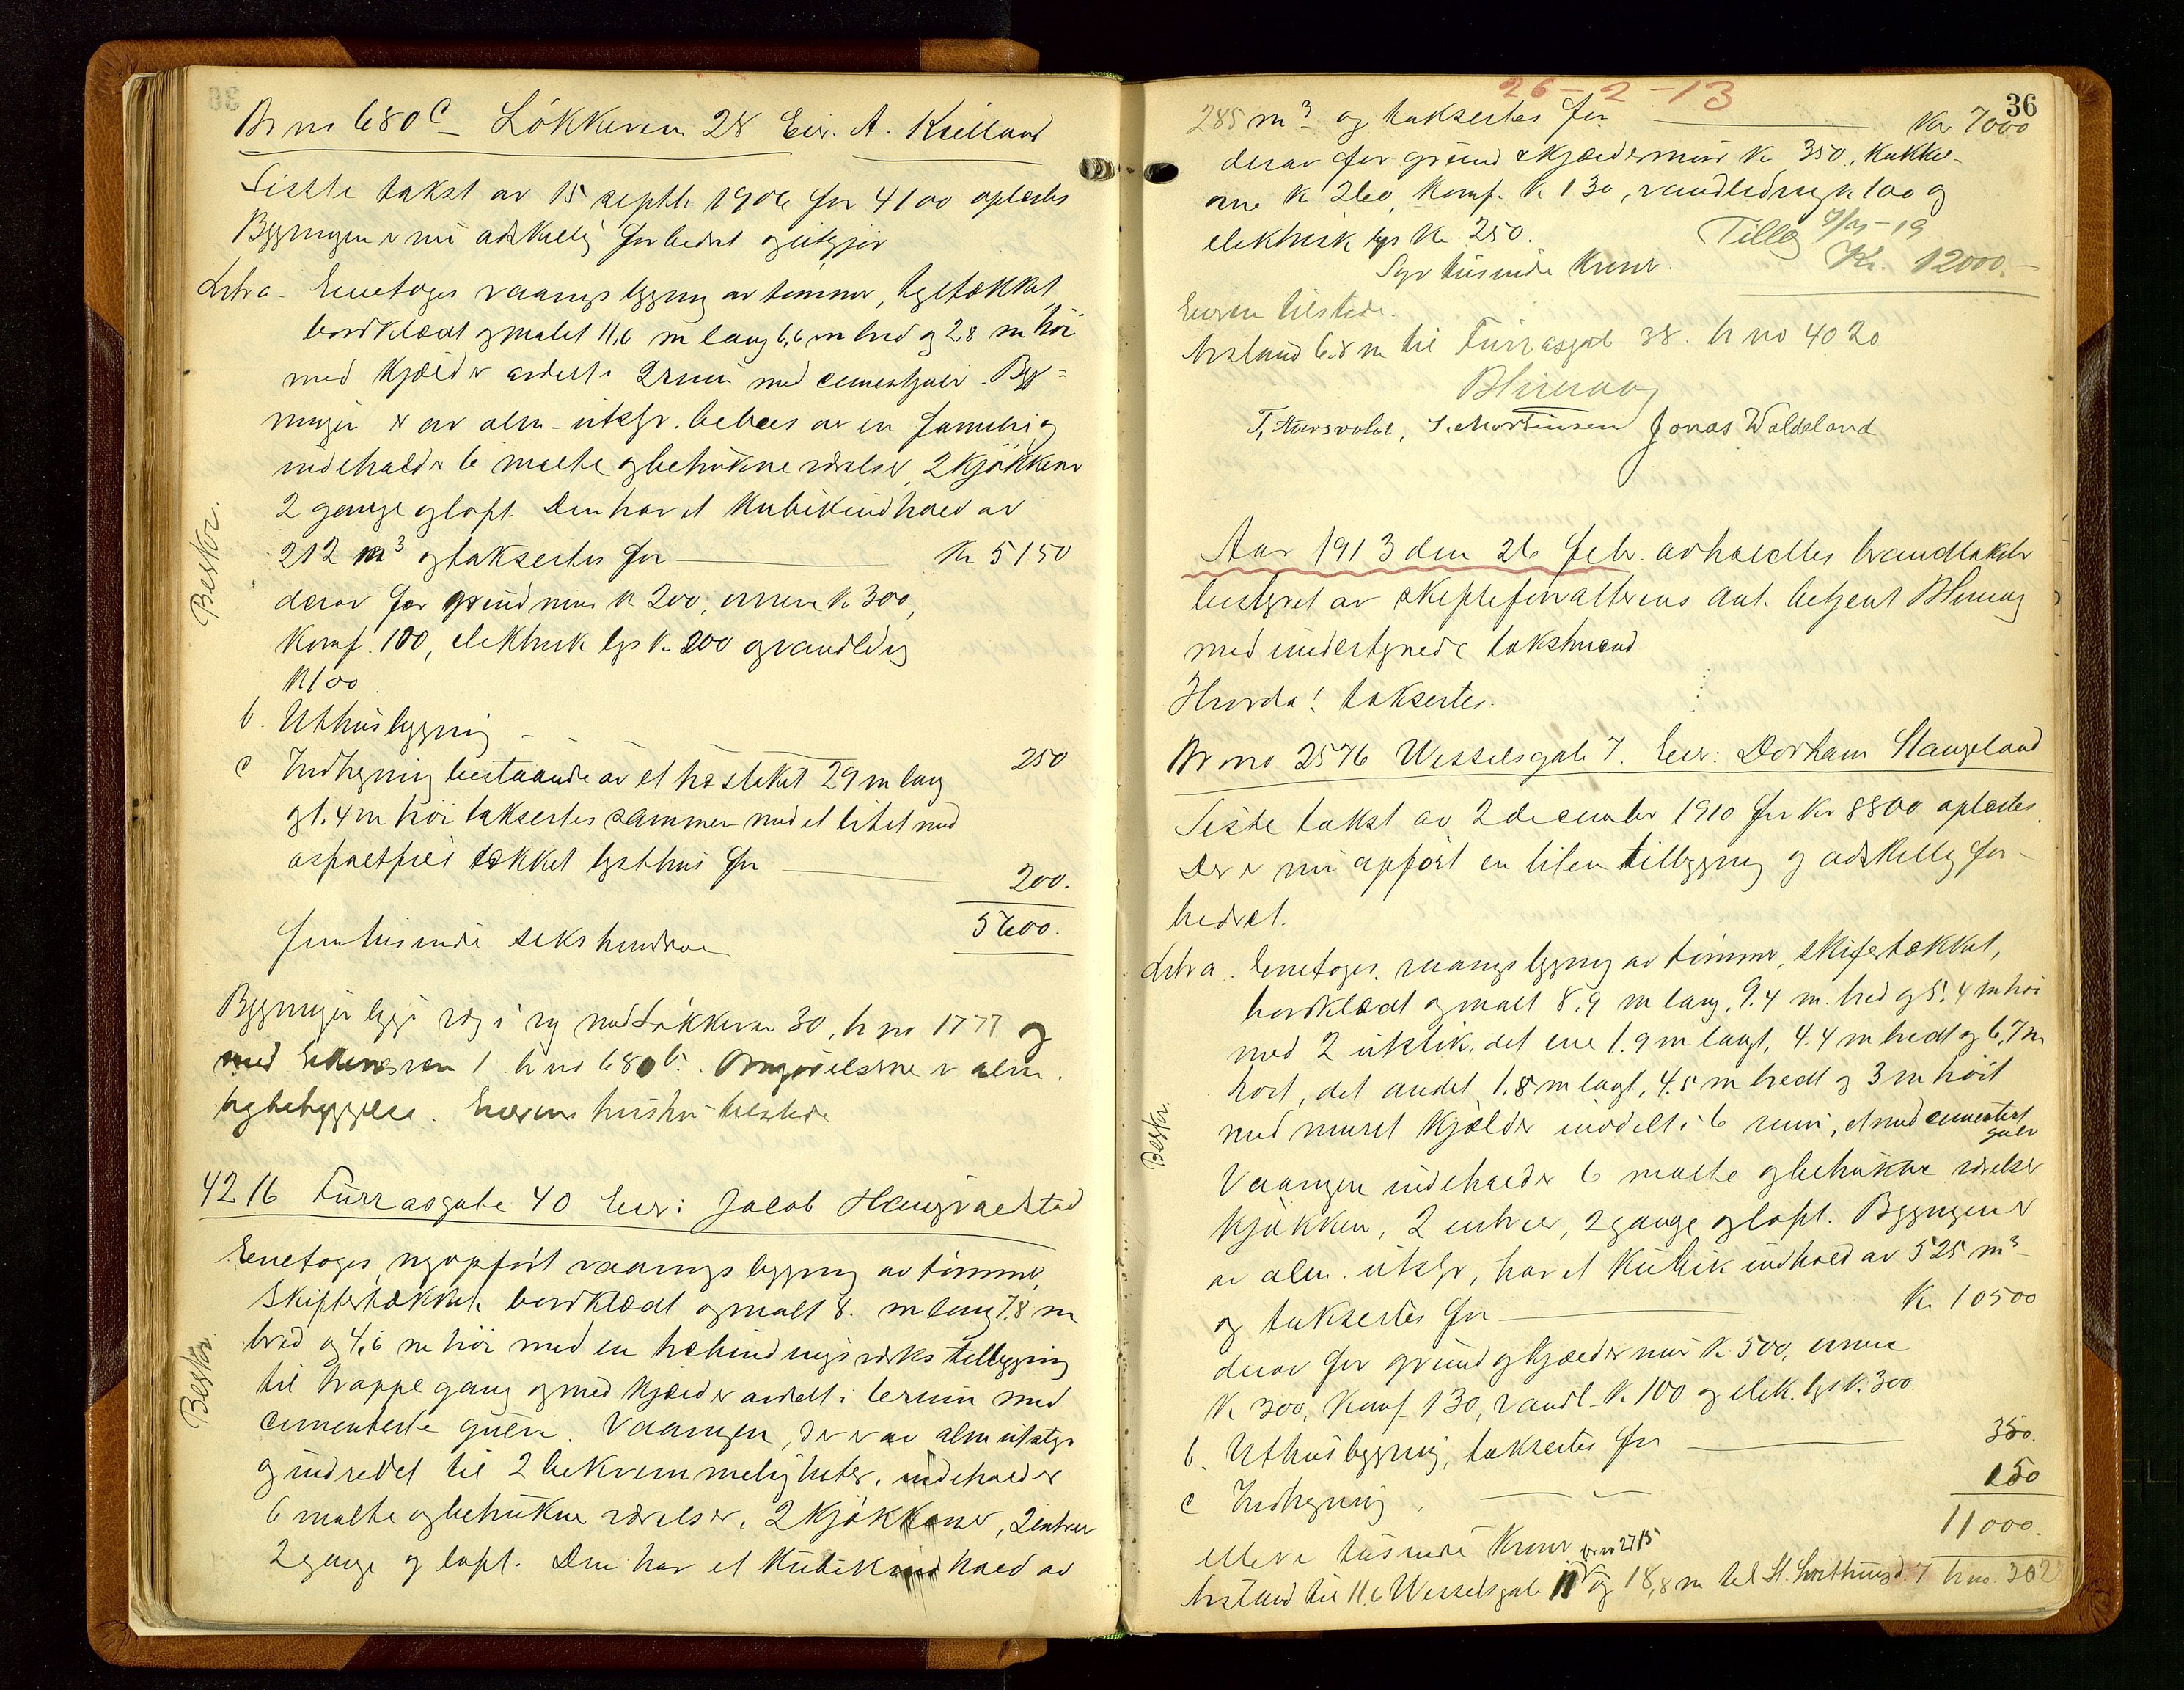 Br no 680 C – Lökkeven 28 Eier. A. Kielland
Siste takst av 15 septb. 1906 for 4100 oplæstes
Bygningen er nu adskillig forbedret og utgjør
Litr a – Enetages vaaningsbygning av tømmer, tegltækket,
bordklædt og malet 11,6 m lang 6,6 m bred og 2,8 m høi
med kjælder avdelt i 2 rum med cementgulv. Byg=
ningen er av alm. utstyr. bebœs av en familie og
indeholder 6 malte og betrukne værelser, 2 kjøkkener
2 gange og loft. Den har et kubikindhold av
212 m³ og taksertes for — Kr 5150
derav for grundmur kr 200, ovnene kr 300,
komf. 100, elektrisk lys kr. 200 og vandledning
kr 100
b. Uthusbygning – – 250
c Indhegning bestaaende av et træstaket 29 m lang
og 1.4 m høi taksertes sammen med et litet med
asfaltfilt tækket lysthus for — 200.
5600.
femtusinde sekshundrede
Beskr.
Bygningen ligger væg i væg med Løkkeven 30, br no 1777 og
med Edensven 1. br no 680 b. Omgivelserne er alm.
bybebyggelse. Eierens hustru tilstede
4216 Furrasgate 40 Eier: Jacob Haugvaldstad
Enetages, nyopført vaaningsbygning av tømmer,
skiffertækket, bordklædt og malt 8. m lang 7.8 m
bred og 4,6 m høi med en træbindingsverks tilbygning
til trappegang og med kjælder avdelt i 6 rum med
cementerte gulve. Vaaningen, der er av alm utstyr
og indredet til 2 bekvemmeligheter, indeholder
6 malte og betrukne værelser, 2 kjøkkener, 2 entreer
2 gange og loft. Den har et kubikindhold av
Beskr.
26-2-13
36
285 m³ og taksertes for — Kr 7000
derav for grund & kjældermur kr 350, kakkel-
ovne kr 260, komf. kr 130, vandledning kr 100 og
elektrisk lys kr. 250.
Syv tusinde kroner.
Tillæg -19
Kr. 12000.–
Eieren tilstede.
Avstand 6.8 m til Furrasgate 38. br no 4020
T. Auesvold, S. Mortensen Jonas Waldeland
Aar 1913 den 26 febr. avholdtes brandtakst
bestyret av skifteforvalterens aut. betjent
med undertegnede takstmænd
Hvorda! taksertes.
Br no 2576 Wesselsgate 7. Eier: Dortham Stangeland
Siste takst av 2 december 1910 for kr 8800 oplæstes.
Der er nu opført en liten tilbygning og adskillig for-
bedret.
Litr a. Enetages. vaaningsbygning av tømmer, skifertækket,
bordklædt og malt 8.9 m lang, 9.4 m. bred og 5.4 m høi
med 2 utstik, det ene 1.9 m langt, 4.4 m bredt og 6,7 m
høit, det andet 1.8 m langt, 4.5 m bredt og 3 m høit
med muret kjælder inddelt i 6 rum, et med cementert
gulv
Vaaningen indeholder 6 malte og betrukne værelser
kjøkken, 2 entreer, 2 gange og loft. Bygningen er
av alm. utstyr, har et kubikindhold av 525 m³
og taksertes for — Kr. 10500
derav for grund og kjældermur kr 500, ovnene
kr 300, komf. 130, vandl. kr. 100 og elek. lys kr. 300.
b. Uthusbygning, taksertes for — 350.
c Indhegning. — 150
11000.
elleve tusinde kroner
Beskr.
Avstand til 11.6 Wesselsgate 11 br no 2715 og 18,8 m til St. Svithunsgt. 7 br no. 302